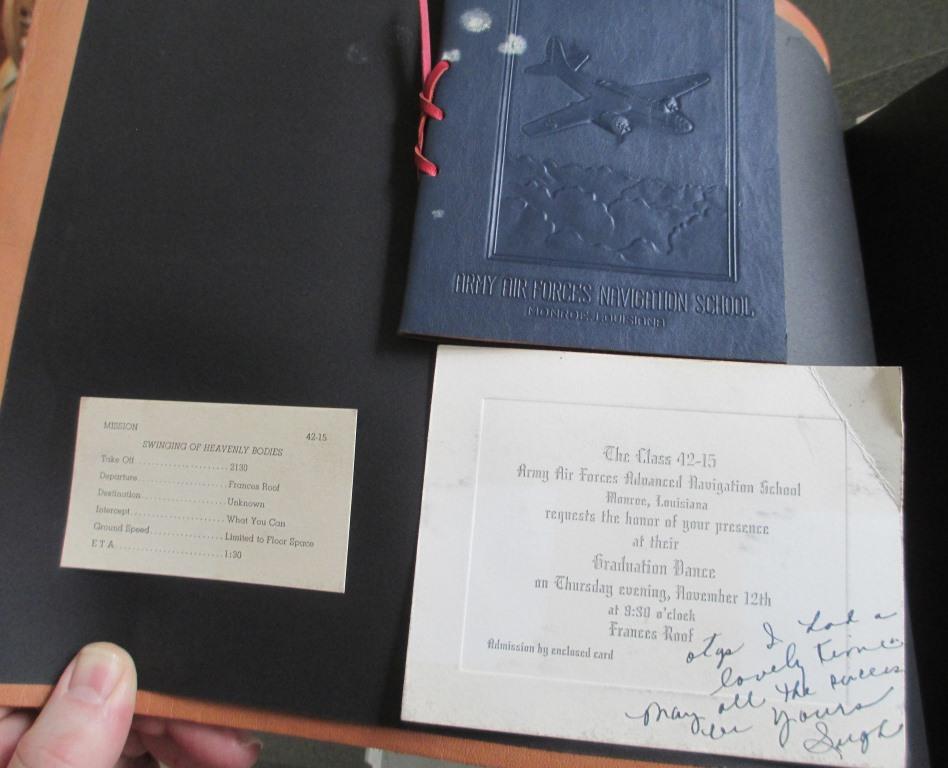 ARMY AIR FORCES NAVIGATION SCHOOL
MONROE, LOUISIANA
MISSION
42-15
SWINGING OF HEAVENLY BODIES
Take Off ........................ 2130
Departure ........................ Frances Roof
Destination ........................ Unknown
Intercept ........................ What You Can
Ground Speed ........................ Limited to Floor Space
E T A ........................ 1:30
The Class 42-15
Army Air Forces Advanced Navigation School
Monroe, Louisiana
requests the honor of your presence
at their
Graduation Dance
on Thursday evening, November 12th
at 9:30 o'clock
Frances Roof
Admission by enclosed card
I had a
lovely time
May all the success
Yours